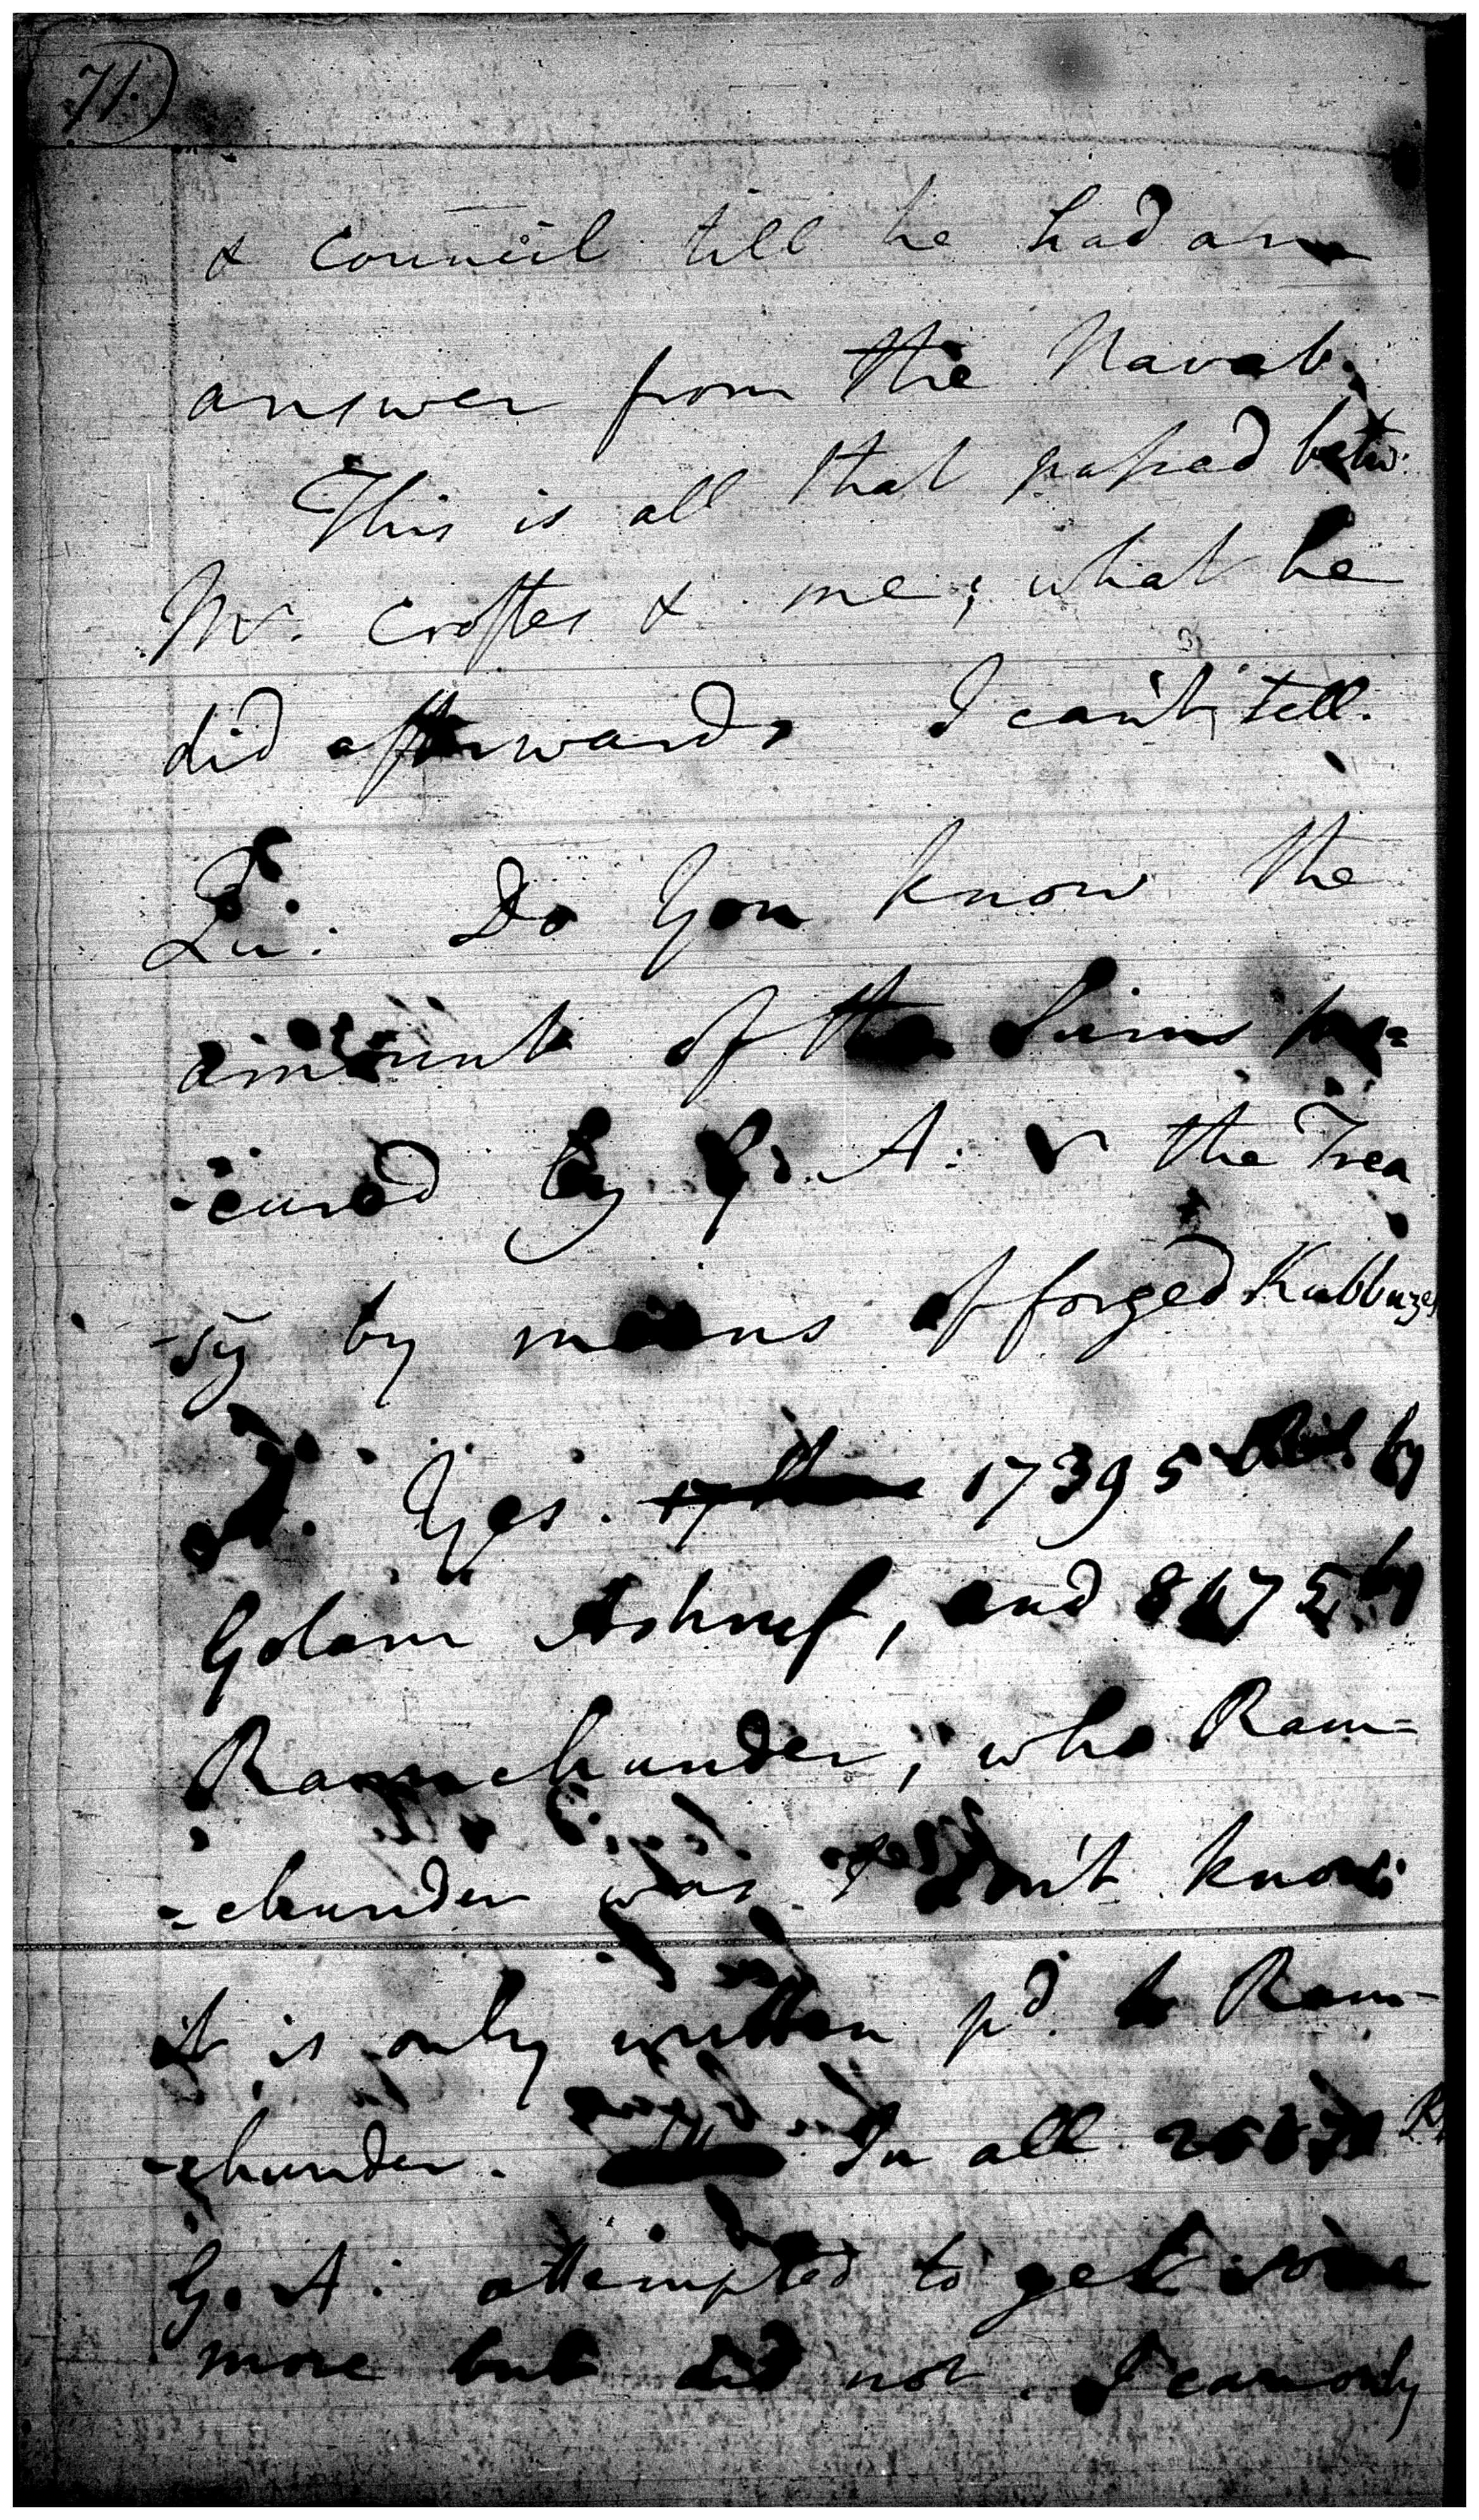 71.
& council till he had an
answer from the Navab.
This is all that passed betw:
Mr. Croftes & me; what he
did afterwards I can't tell.
Qu: Do You know the
amount of the Sums pro=
-cured by G. A: & the Trea
-sy by means of forged Kubbuzes
A. Yes. 17395 by
Golam Ashruf, and by
Ramchunder; who Ram=
=chunder was I don't know:
it is only written pd. to Ram-
-chunder. In all Rs
G. A. attempted to get some
more but did not. I can only